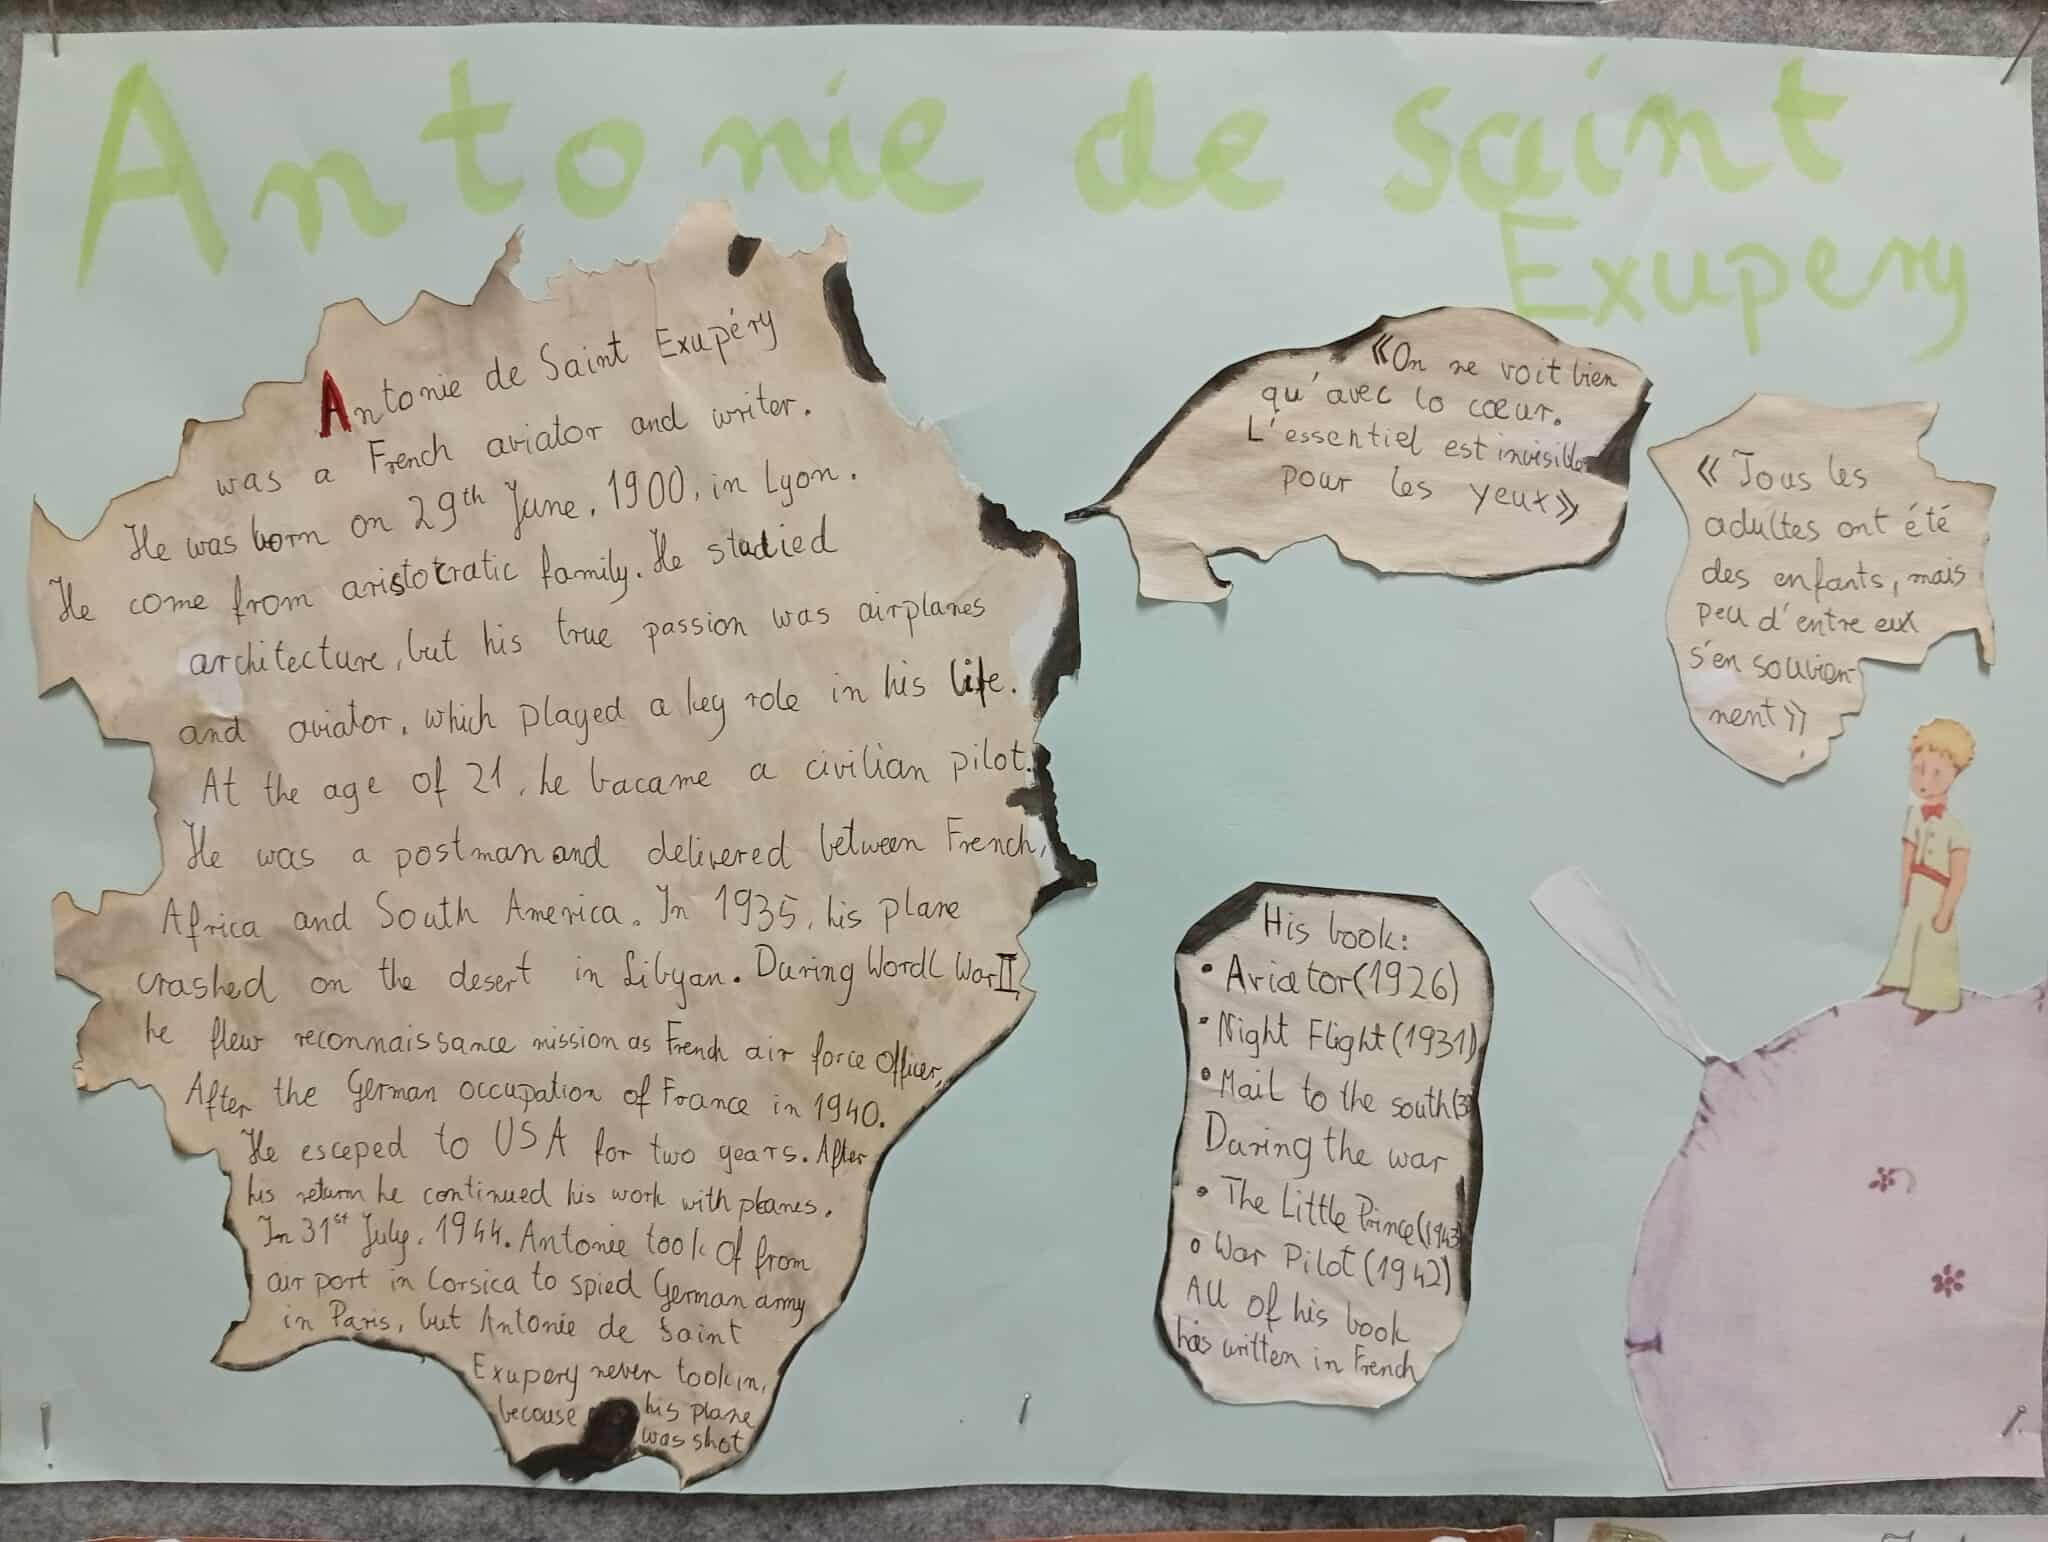 Antonie de saint
Exupery
Antonie de Saint Exupéry
was a French aviator and writer.
He was born on 29th June, 1900, in Lyon.
He come from aristotcratic family. He studied
architecture, but his true passion was airplanes
and aviator, which played a key role in his life.
At the age of 21, he bacame a civilian pilot.
He was a postman and delivered between French,
Africa and South America. In 1935, his plane
crashed on the desert in Libyan. During Wordl War II,
he flew reconnaissance mission as French air force officer,
After the German occupation of France in 1940.
He esceped to USA for two years. After
his return he continued his work with planes.
In 31st July, 1944. Antonie took of from
air port in Corsica to spied German army
in Paris, but Antonie de Saint
Exupery never took in,
becouse his plane
was shot
«On ne voit bien
qu'avec lo cœur.
L'essentiel est invisible
pour les yeux»
« Tous les
adultes ont été
des enfants, mais
peu d'entre eux
s'en souvien-
nent»
His book:
• Aviator (1926)
• Night Flight (1931)
• Mail to the south (30
During the war
• The Little Prince (1943
• War Pilot (1942)
All of his book
has written in French